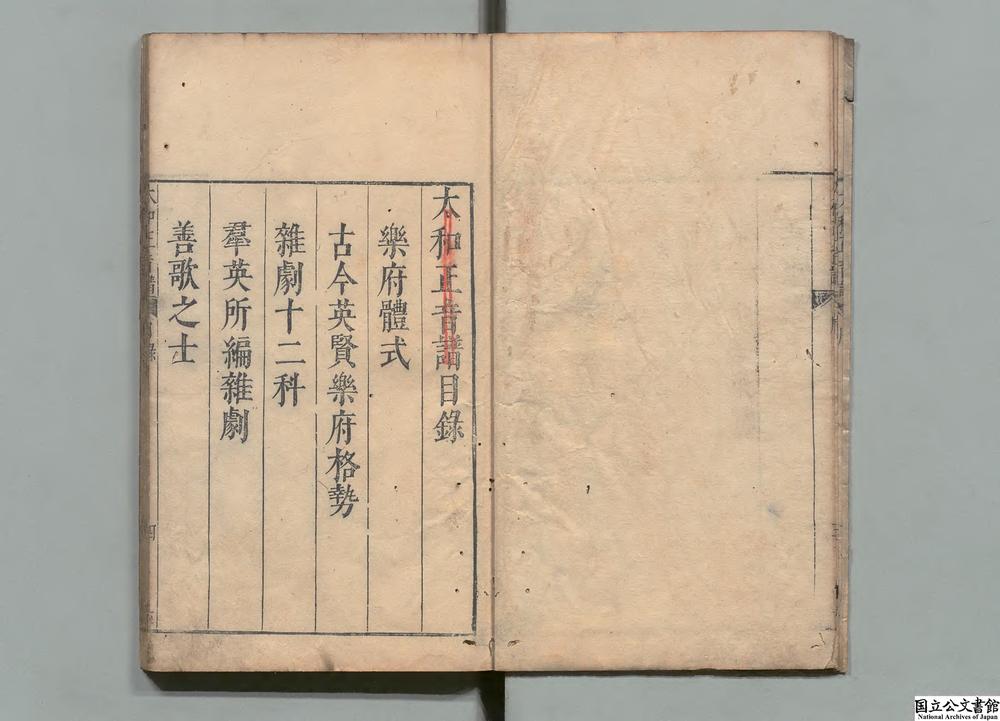 太和正音譜目錄
樂府體式
古今英賢樂府格勢
雜劇十二科
羣英所編雜劇
善歌之士
四
国立公文書館
National Archives of Japan